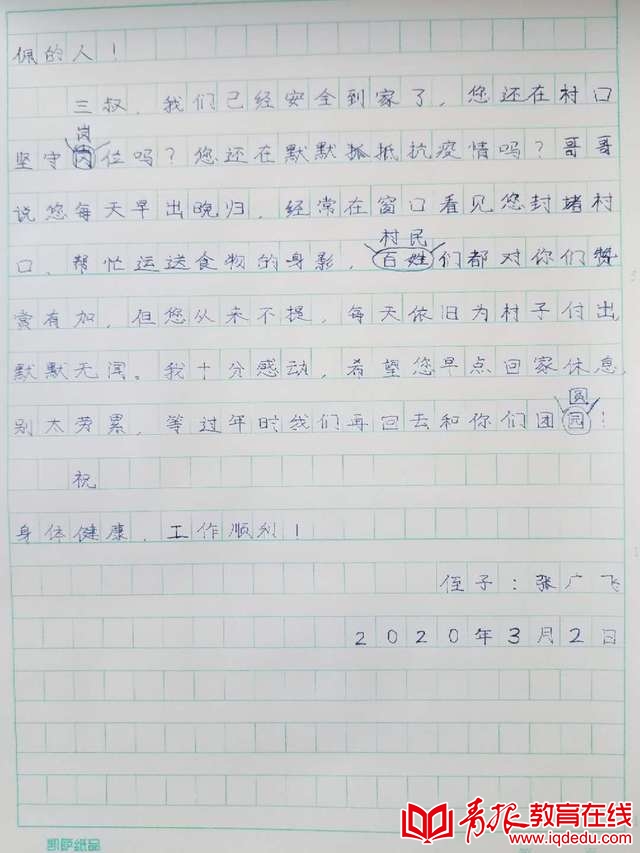 佩的人！
三叔，我们已经安全到家了，您还在村口
岗
坚守岗位吗？您还在默默抵抗疫情吗？哥哥
说您每天早出晚归，经常在窗口看见您封堵村
村民
口、帮忙运送食物的身影，百姓们都对你们赞
赏有加，但您从来不提，每天依旧为村子付出
默默无闻。我十分感动，希望您早点回家休息，
别太劳累，等过年时我们再回去和你们团园！
圆
祝
身体健康，工作顺利！
侄子：张广飞
2020年3月2日
凯萨纸品
青报教育在线
www.iqdedu.com